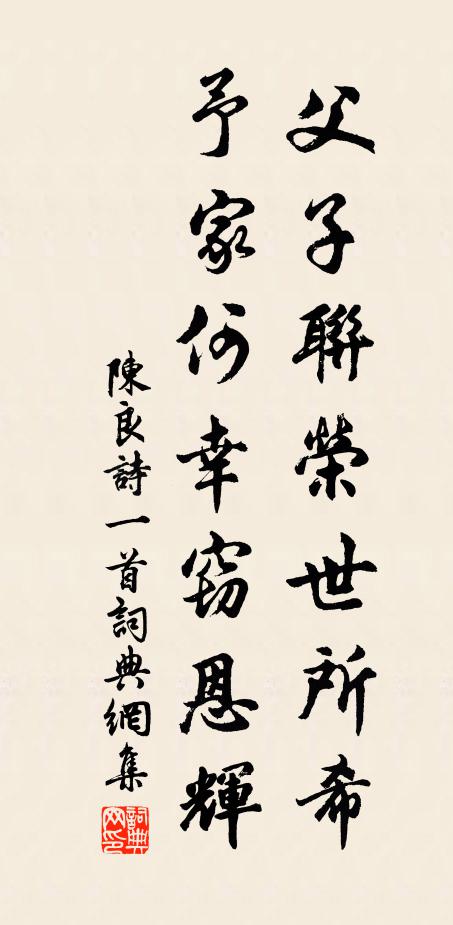 父子聯榮世所希
予家何幸窃恩輝
陳良詩一首詞典網集
詞典网印